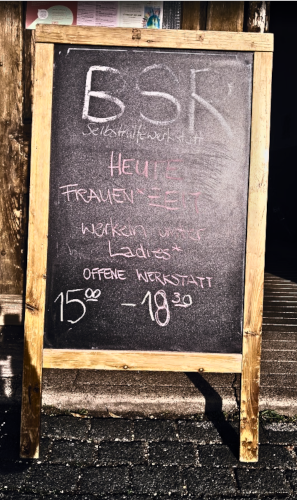 BSR
Selbsthilfewerkstatt
HEUTE
FRAUEN*ZEIT
werkeln unter
Ladies*
OFFENE WERKSTATT
15⁰⁰ - 18³⁰